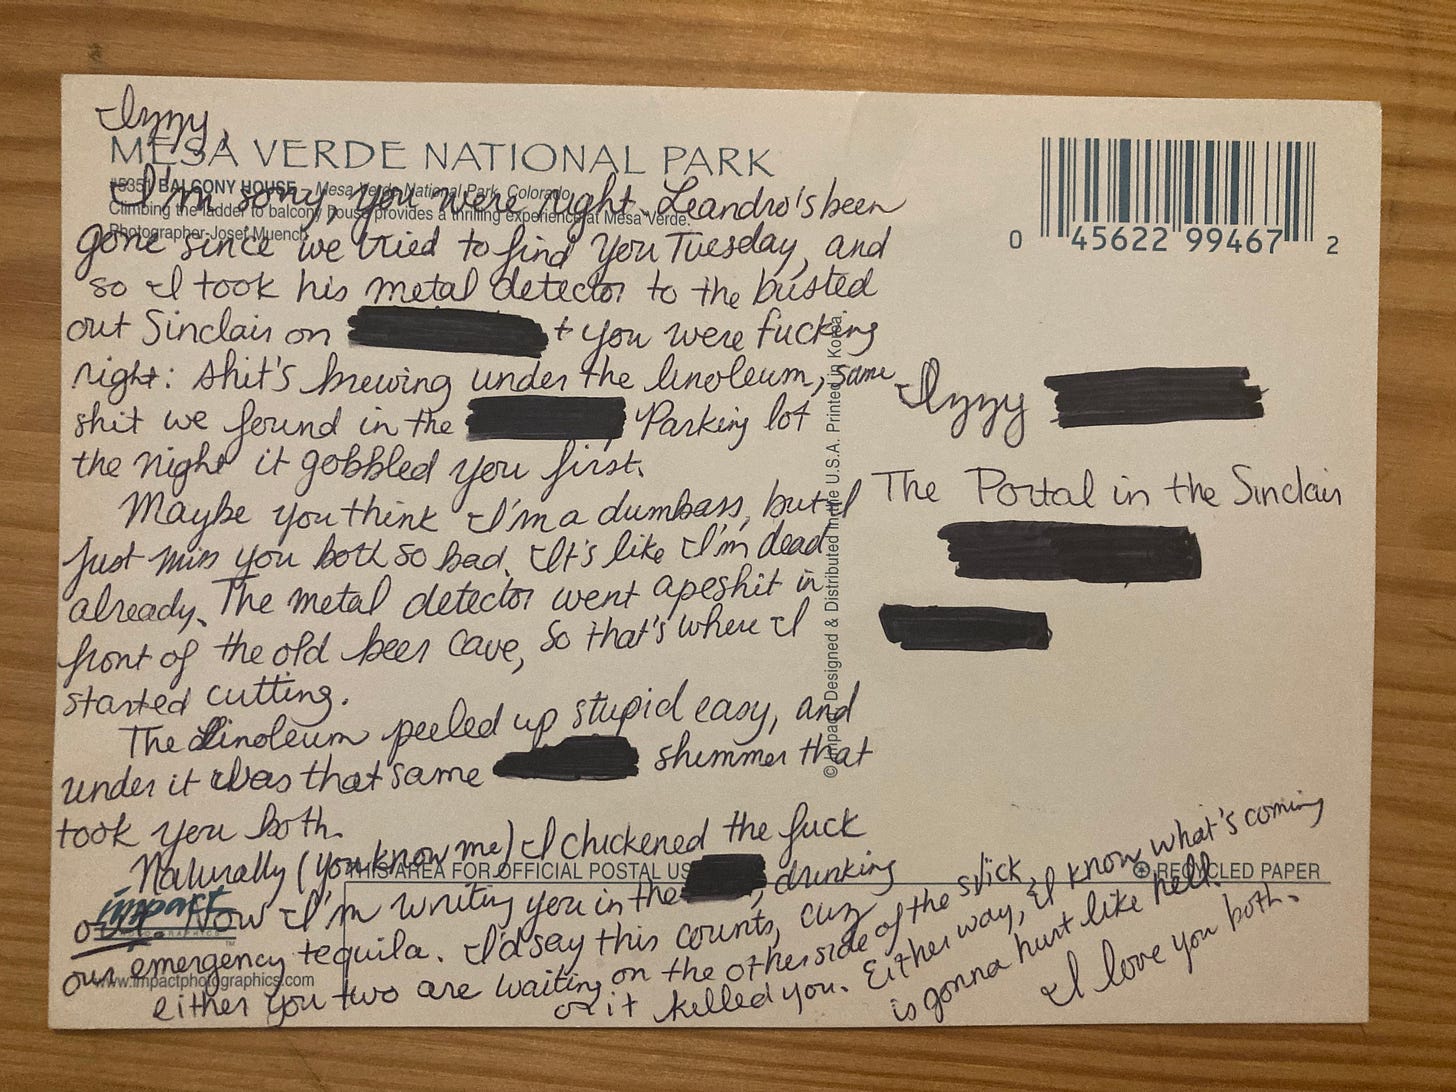 Izzy,
MESA VERDE NATIONAL PARK
#5351 BALCONY HOUSE - Mesa Verde National Park, Colorado
Climbing the ladder to balcony house provides a thrilling experience at Mesa Verde.
Photographer-Josef Muench
I'm sorry, you were right. Leandro's been
gone since we tried to find you Tuesday, and
so I took his metal detector to the busted
out Sinclair on + you were fucking
right: shit's brewing under the linoleum, same
shit we found in the Parking lot
the night it gobbled you first.
Maybe you think I'm a dumbass, but I
just miss you both so bad. It's like I'm dead
already. The metal detector went apeshit in
front of the old beer cave, so that's where I
started cutting.
The linoleum peeled up stupid easy, and
under it was that same shimmer that
took you both.
Naturally (you know me) I chickened the fuck
out. Now I'm writing you in the , drinking
our emergency tequila. I'd say this counts, cuz
either you two are waiting on the other side of the slick,
or it killed you. Either way, I know what's coming
is gonna hurt like hell.
I love you both.
0 45622 99467 2
Izzy
The Portal in the Sinclair
© Impact, Designed & Distributed in the U.S.A. Printed in Korea.
THIS AREA FOR OFFICIAL POSTAL US
RECYCLED PAPER
impact
PHOTOGRAPHICS™
www.impactphotographics.com